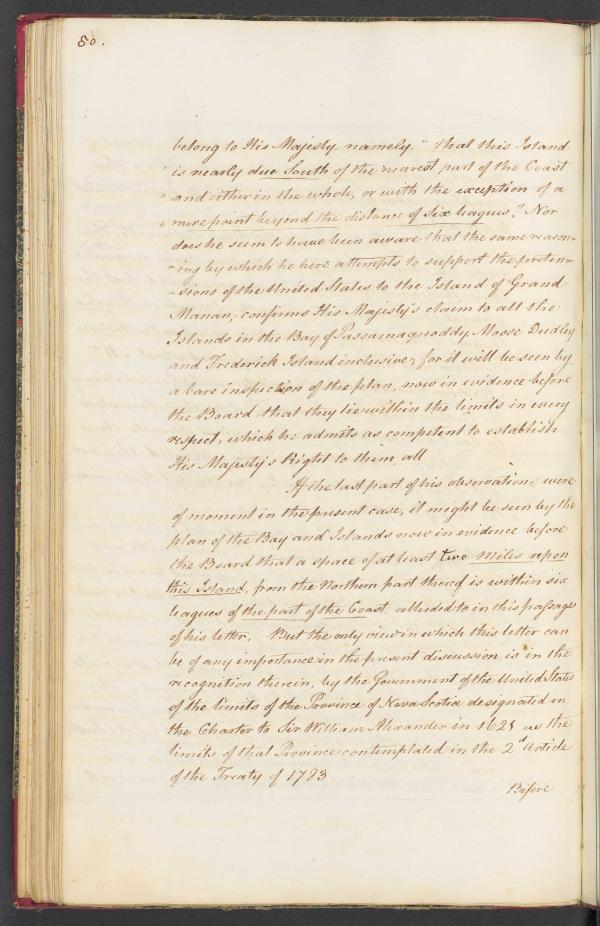 80.
belong to His Majesty, namely, "that this Island
" is nearly due South of the nearest part of the Coast
" and either in the whole, or with the exception of a
" mere point beyond the distance of Six leagues". Nor
does he seem to have been aware that the same reason-
-ing by which he here attempts to support the preten-
-sions of the United States to the Island of Grand
Manan, confirms His Majesty's claim to all the
Islands in the Bay of Passamaquoddy, Moose Dudley
and Frederick Island inclusive; for it will be seen by
a bare inspection of the plan, now in evidence before
the Board that they lie within the limits in every
respect, which he admits as competent to establish
His Majesty's Right to them all
If the last part of his observations were
of moment in the present case, it might be seen by the
plan of the Bay and Islands now in evidence before
the Board that a space of at least two Miles upon
this Island, from the Northern part thereof is within six
leagues of the part of the Coast, alluded to in this passage
of his letter. But the only view in which this letter can
be of any importance in the present discussion is in the
recognition therein, by the Government of the United States
of the limits of the Province of Nova Scotia designated in
the Charter to Sir William Alexander in 1621 as the
limits of that Province contemplated in the 2d Article
of the Treaty of 1783.
Before